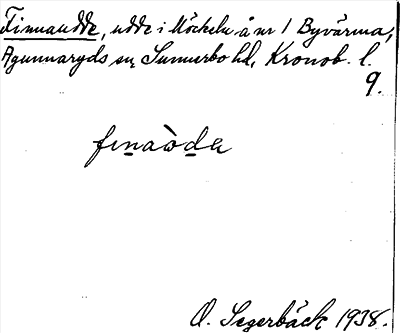 Finnaudde, udde i Möckeln å nr 1 Byvärma,
Agunnaryds sn, Sunnerbo hd, Kronob. l.
9.
finaùdɐ
O. Segerbäck 1938.